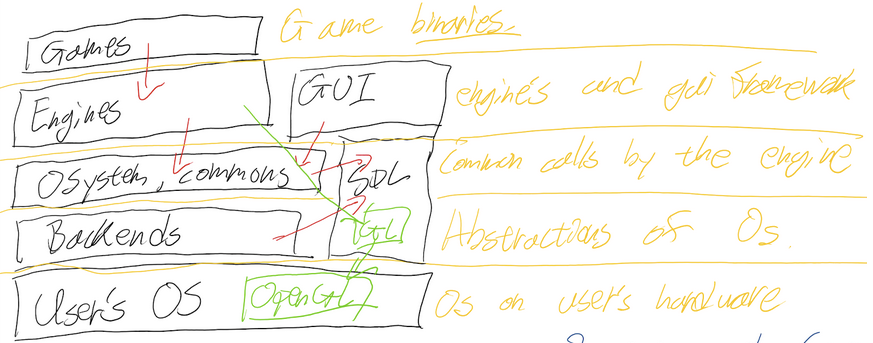 Games
Game binaries.
Engines
GUI
engine's and gui framework
OSystem, commons
SDL
Common calls by the engine
Backends
Abstractions of Os.
User's OS
OpenGL
Os on user's hardware